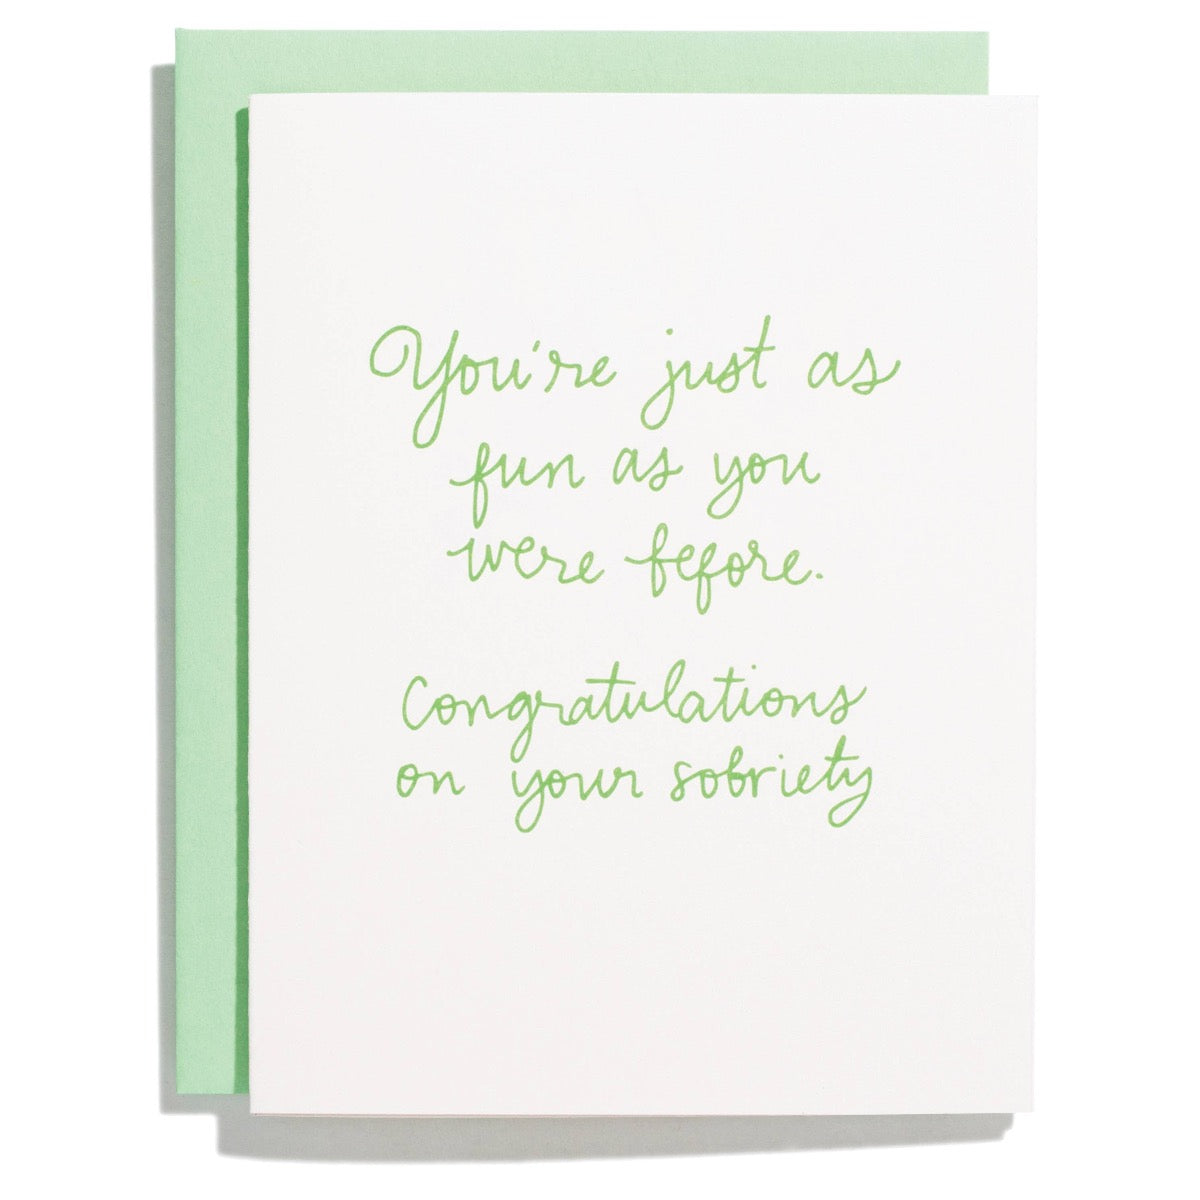 You're just as
fun as you
were before.
Congratulations
on your sobriety